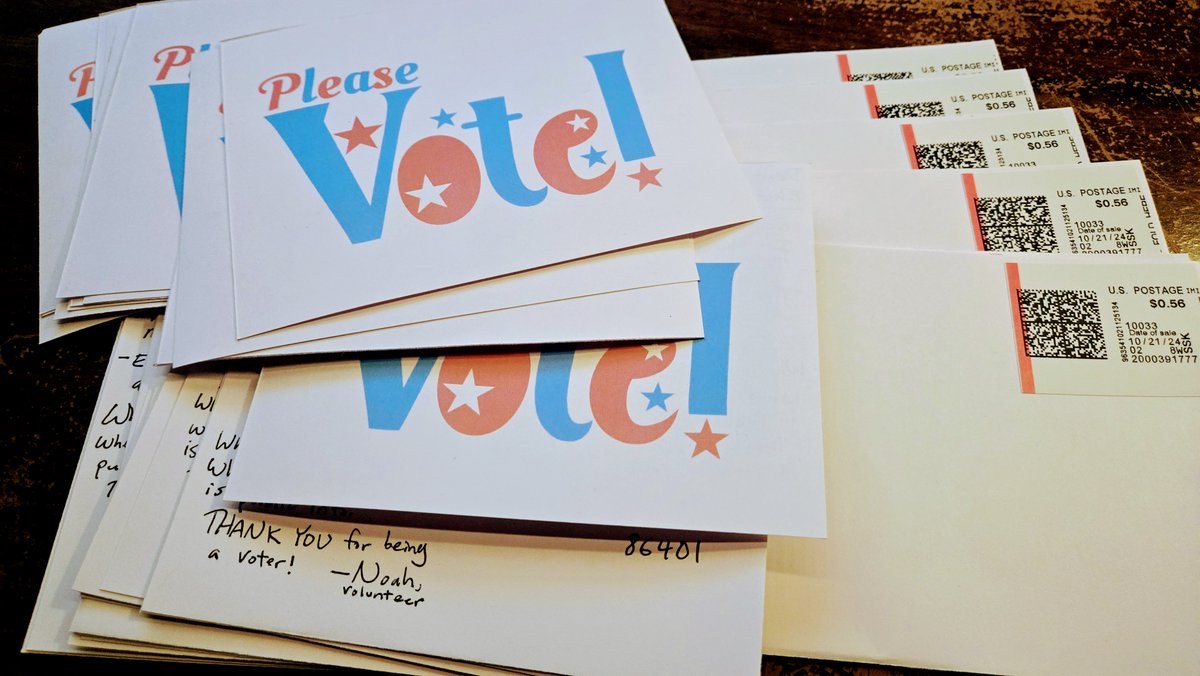 Please
Vote!
Vote!
P
P
U.S. POSTAGE IMI
U.S. POSTAGE IMI
$0.56
U.S. POSTAGE IMI
$0.56
U.S. POSTAGE IMI
$0.56
10033
Date of sale
10/21/24
02 8WSSK
9635410211251​34
U.S. POSTAGE IMI
$0.56
10033
Date of sale
10/21/24
02 8WSSK
2000391777
THANK YOU for being
a voter! —Noah,
volunteer
86401